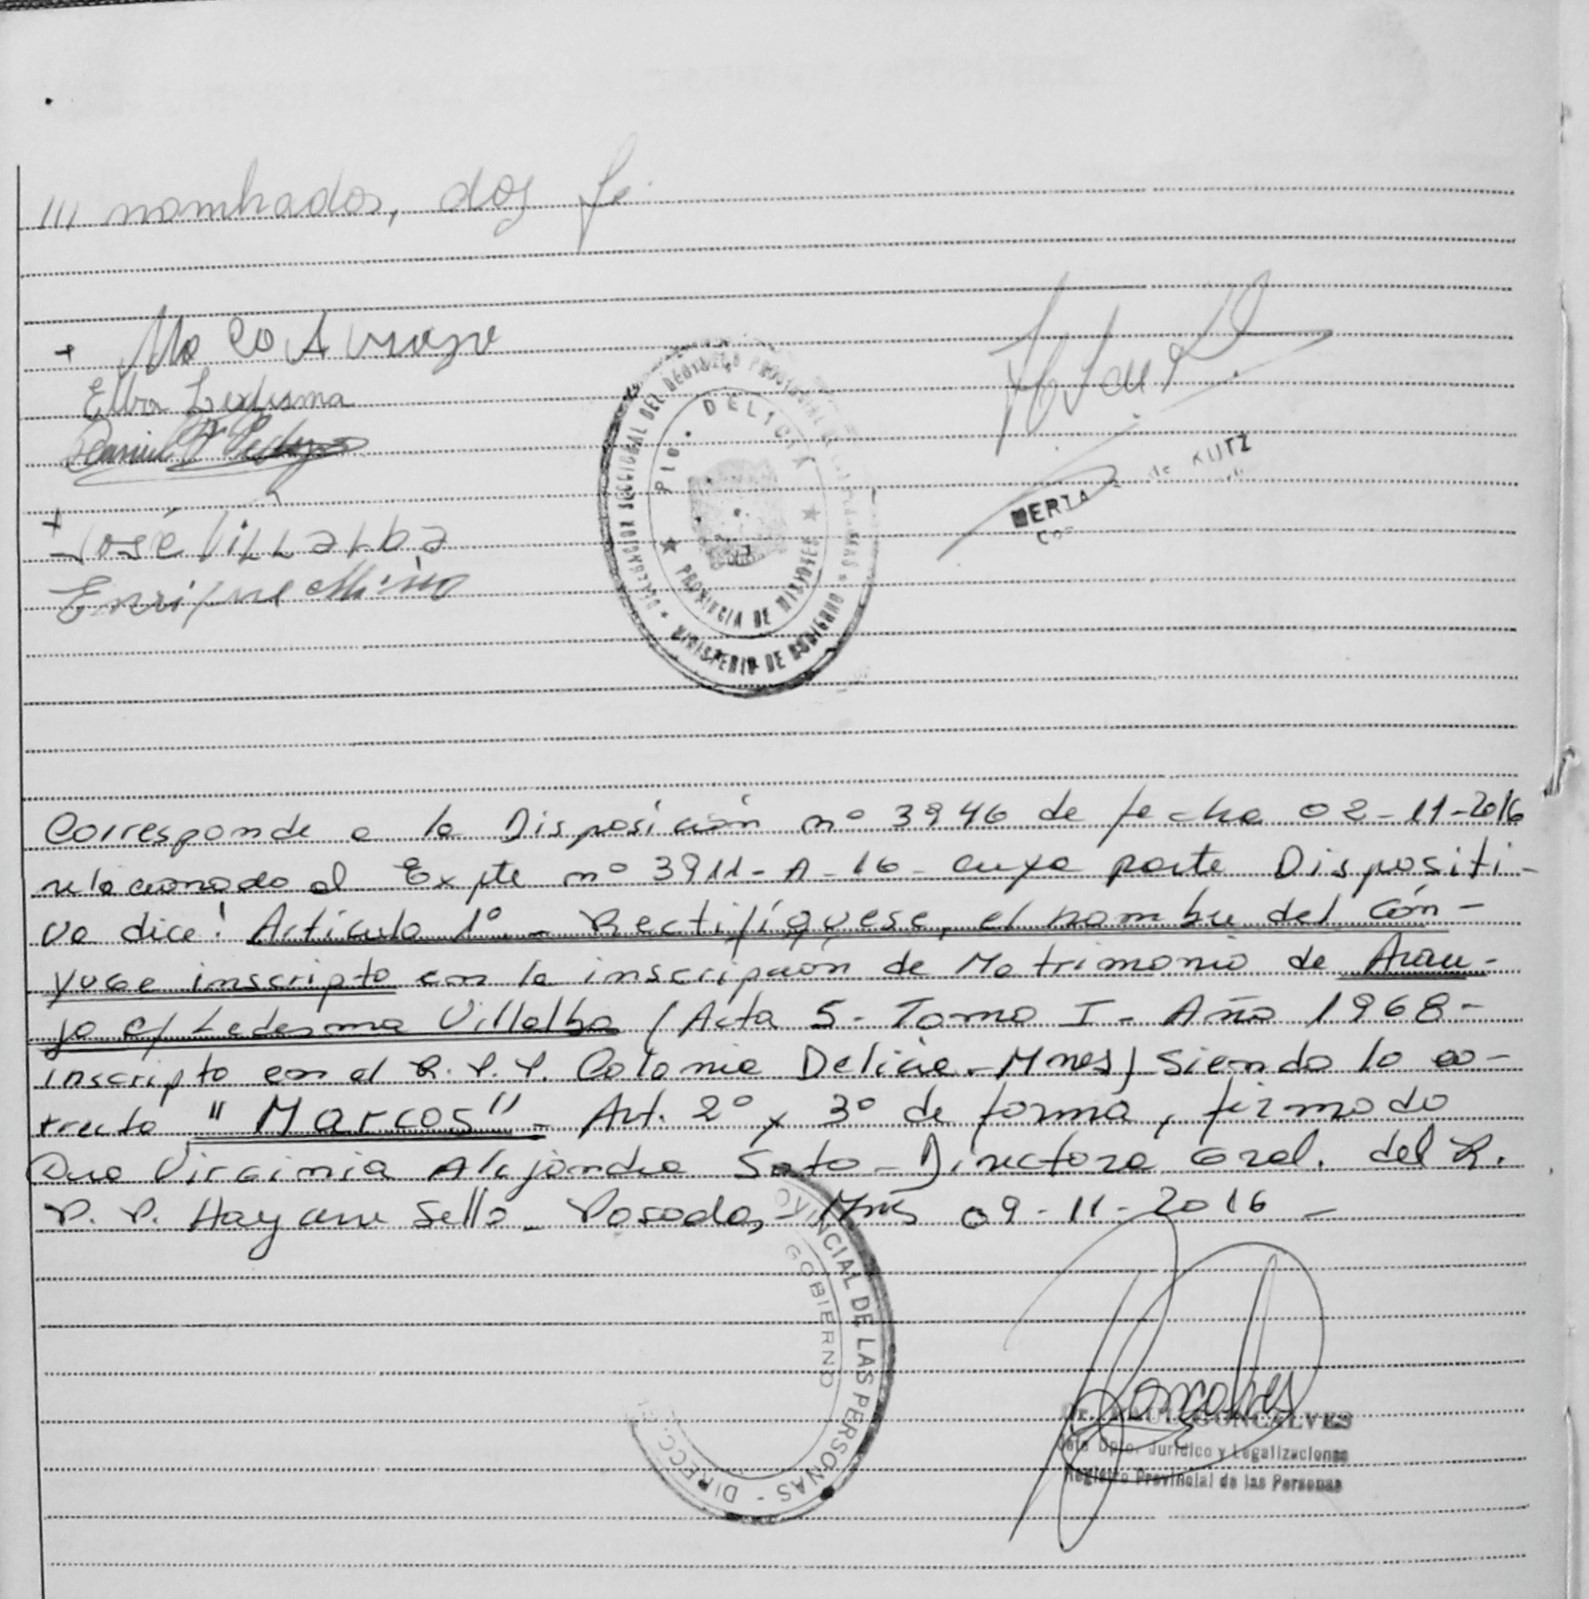 /// nombrados, doy fe
Elba Ledesma
Daniel
José Villalba
Enrique Miño
Pto. DELICIA
PROVINCIA DE MISIONES
DELEGACION SECCIONAL DEL REGISTRO PROVINCIAL DE LAS PERSONAS
MINISTERIO DE GOBIERNO
BERTA de KUTZ
Corresponde a la Disposición nº 3946 de fecha 02-11-2016
relacionado al Expte nº 3911-A-16- cuya parte Dispositi-
va dice: Artículo 1º.- Rectifíquese, el nombre del Cón-
yuge inscripto en la inscripción de Matrimonio de Arau-
jo c/ Ledesma Villalba (Acta 5- Tomo I- Año 1968-
inscripto en el R.P.P. Colonia Delicia-Mnes) Siendo lo co-
rrecto "Marcos"- Art. 2º y 3º de forma, firmado
Dra Virginia Alejandra Soto- Directora Gral. del R.
P. P. Hay un sello- Posadas, Mns 09-11-2016-
DIRECC. PROVINCIAL DE LAS PERSONAS
GOBIERNO
Dr. GONCALVES
Jefe Dpto. Jurídico y Legalizaciones
Registro Provincial de las Personas